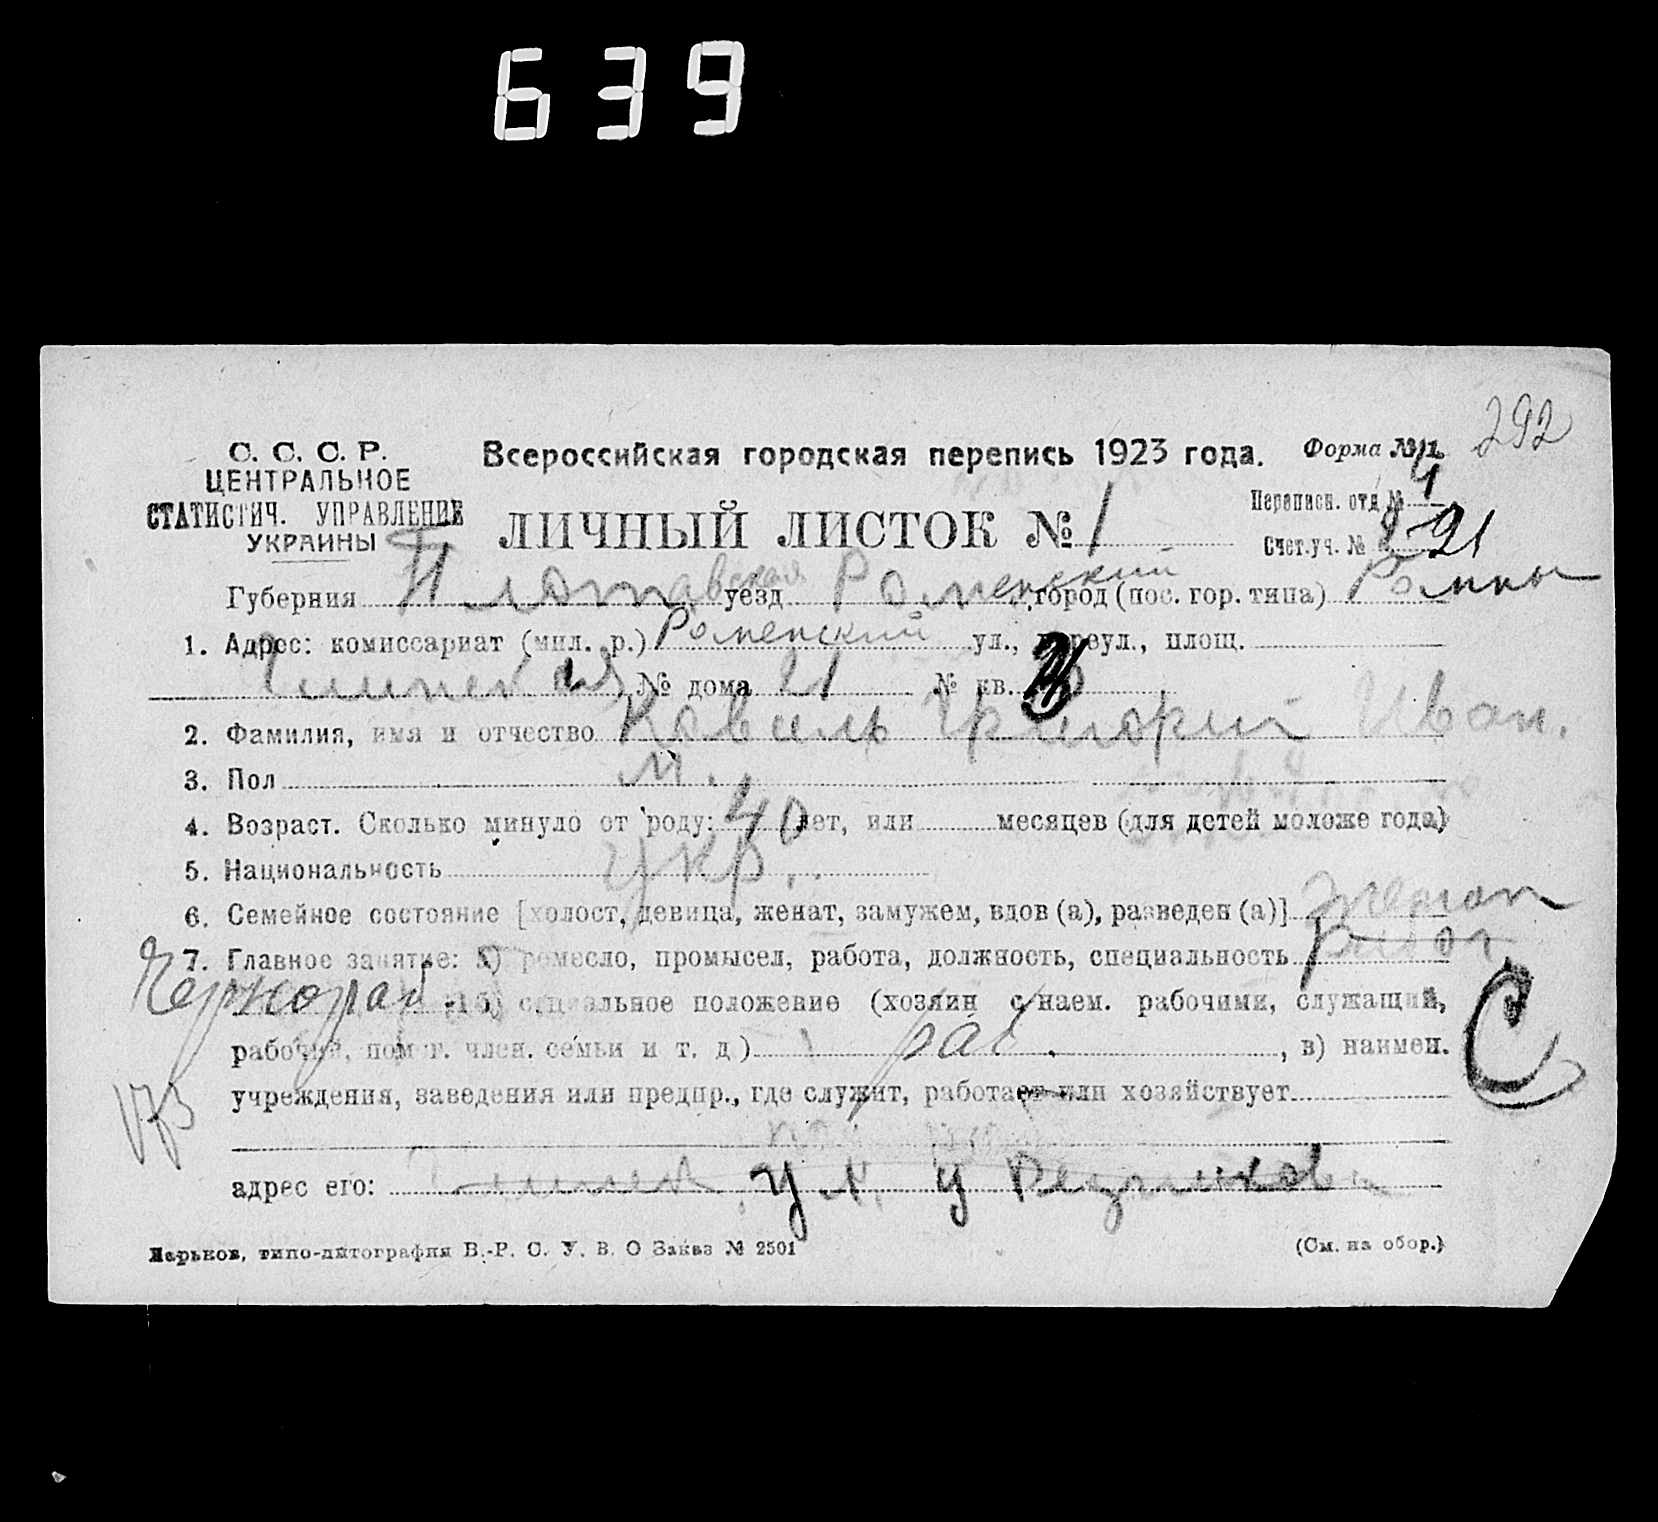 639
292
С. С. С. Р.
ЦЕНТРАЛЬНОЕ
СТАТИСТИЧ. УПРАВЛЕНИЕ
УКРАИНЫ
Всероссийская городская перепись 1923 года.
Форма №
Переписн. отд № 4
ЛИЧНЫЙ ЛИСТОК № 1
Счет.уч. № 21
Губерния Полтавская уезд Роменский город (пос. гор. типа) Ромны
1. Адрес: комиссариат (мил. р.) Роменский ул., переул., площ.
№ дома 21 № кв.
2. Фамилия, имя и отчество Ковель Григорий Иван.
3. Пол М.
4. Возраст. Сколько минуло от роду: 40 лет, или месяцев (для детей моложе года)
5. Национальность Укр.
6. Семейное состояние [холост, девица, женат, замужем, вдов (а), разведен (а)] женат
7. Главное занятие: а) ремесло, промысел, работа, должность, специальность
Чернораб. б) социальное положение (хозяин с наем. рабочими, служащий,
рабочий, помог. член. семьи и т. д) раб. , в) наимен.
С
учреждения, заведения или предпр., где служит, работает или хозяйствует
173
адрес его: ул. у Резникова
Харьков, типо-литография В.-Р. С. У. В. О Заказ № 2501
(См. на обор.)